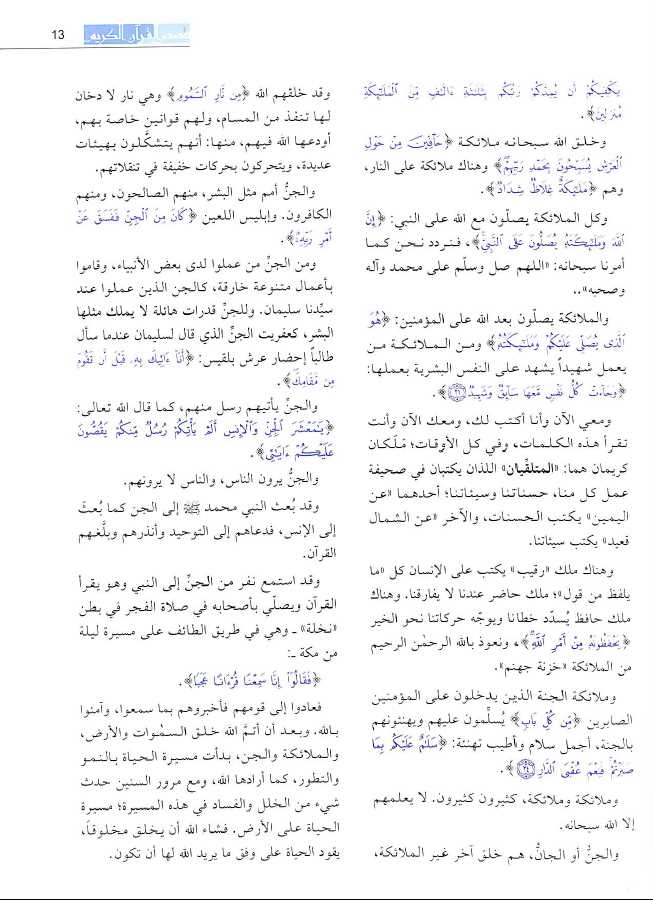 قصص القرآن الكريم 13
يَكْفِيَكُمْ أَن يُمِدَّكُمْ رَبُّكُم بِثَلَاثَةِ ءَالَافٍ مِّنَ الْمَلَائِكَةِ
مُنزَلِينَ﴾.
وخلق الله سبحانه ملائكة ﴿حَافِّينَ مِنْ حَوْلِ
الْعَرْشِ يُسَبِّحُونَ بِحَمْدِ رَبِّهِمْ﴾ وهناك ملائكة على النار،
وهم ﴿مَلَائِكَةٌ غِلَاظٌ شِدَادٌ﴾.
وكل الملائكة يصلّون مع الله على النبي: ﴿إِنَّ
اللَّهَ وَمَلَائِكَتَهُ يُصَلُّونَ عَلَى النَّبِيِّ﴾، فنردد نحن كما
أمرنا سبحانه: «اللهم صل وسلّم على محمد وآله
وصحبه»..
والملائكة يصلّون بعد الله على المؤمنين: ﴿هُوَ
الَّذِي يُصَلِّي عَلَيْكُمْ وَمَلَائِكَتُهُ﴾ ومن الملائكة من
يعمل شهيداً يشهد على النفس البشرية بعملها:
﴿وَجَاءَتْ كُلُّ نَفْسٍ مَّعَهَا سَائِقٌ وَشَهِيدٌ ٢١﴾
ومعي الآن وأنا أكتب لك، ومعك الآن وأنت
تقرأ هذه الكلمات، وفي كل الأوقات؛ مَلَكان
كريمان هما: «المتلقّيان» اللذان يكتبان في صحيفة
عمل كل منا، حسناتنا وسيئاتنا؛ أحدهما «عن
اليمين» يكتب الحسنات، والآخر «عن الشمال
قعيد» يكتب سيئاتنا.
وهناك ملك «رقيب» يكتب على الإنسان كل «ما
يلفظ من قول»؛ ملك حاضر عندنا لا يفارقنا. وهناك
ملك حافظ يُسدّد خطانا ويوجّه حركاتنا نحو الخير
﴿يَحْفَظُونَهُ مِنْ أَمْرِ اللَّهِ﴾، ونعوذ بالله الرحمٰن الرحيم
من الملائكة «خزنة جهنم».
وملائكة الجنة الذين يدخلون على المؤمنين
الصابرين ﴿مِّن كُلِّ بَابٍ﴾ يُسلِّمون عليهم ويهنئونهم
بالجنة، أجمل سلام وأطيب تهنئة: ﴿سَلَامٌ عَلَيْكُم بِمَا
صَبَرْتُمْ فَنِعْمَ عُقْبَى الدَّارِ ٢٤﴾.
وملائكة وملائكة، كثيرون كثيرون. لا يعلمهم
إلا الله سبحانه.
والجنُّ أو الجانُّ، هم خلق آخر غير الملائكة،
وقد خلقهم الله ﴿مِن نَّارِ السَّمُومِ﴾ وهي نار لا دخان
لها تنفذ من المسام، ولهم قوانين خاصة بهم،
أودعها الله فيهم، منها: أنهم يتشكَّلون بهيئات
عديدة، ويتحركون بحركات خفيفة في تنقلاتهم.
والجنُّ أمم مثل البشر، منهم الصالحون، ومنهم
الكافرون. وإبليس اللعين ﴿كَانَ مِنَ الْجِنِّ فَفَسَقَ عَنْ
أَمْرِ رَبِّهِ﴾.
ومن الجنِّ من عملوا لدى بعض الأنبياء، وقاموا
بأعمال متنوعة خارقة، كالجن الذين عملوا عند
سيِّدنا سليمان. وللجنِّ قدرات هائلة لا يملك مثلها
البشر، كعفريت الجنِّ الذي قال لسليمان عندما سأل
طالباً إحضار عرش بلقيس: ﴿أَنَا ءَاتِيكَ بِهِ قَبْلَ أَن تَقُومَ
مِن مَّقَامِكَ﴾.
والجنُّ يأتيهم رسل منهم، كما قال الله تعالى:
﴿يَامَعْشَرَ الْجِنِّ وَالْإِنسِ أَلَمْ يَأْتِكُمْ رُسُلٌ مِّنكُمْ يَقُصُّونَ
عَلَيْكُمْ ءَايَاتِي﴾.
والجنُّ يرون الناس، والناس لا يرونهم.
وقد بُعث النبي محمد ﷺ إلى الجن كما بُعثَ
إلى الإنس، فدعاهم إلى التوحيد وأنذرهم وبلَّغهم
القرآن.
وقد استمع نفر من الجنِّ إلى النبي وهو يقرأ
القرآن ويصلّي بأصحابه في صلاة الفجر في بطن
«نخلة» ـ وهي في طريق الطائف على مسيرة ليلة
من مكة ـ:
﴿فَقَالُوا إِنَّا سَمِعْنَا قُرْءَانًا عَجَبًا﴾.
فعادوا إلى قومهم فأخبروهم بما سمعوا، وآمنوا
بالله. وبعد أن أتمَّ الله خلق السمٰوات والأرض،
والملائكة والجن، بدأت مسيرة الحياة بالنمو
والتطور، كما أرادها الله، ومع مرور السنين حدث
شيء من الخلل والفساد في هذه المسيرة؛ مسيرة
الحياة على الأرض. فشاء الله أن يخلق مخلوقاً،
يقود الحياة على وفق ما يريد الله لها أن تكون.